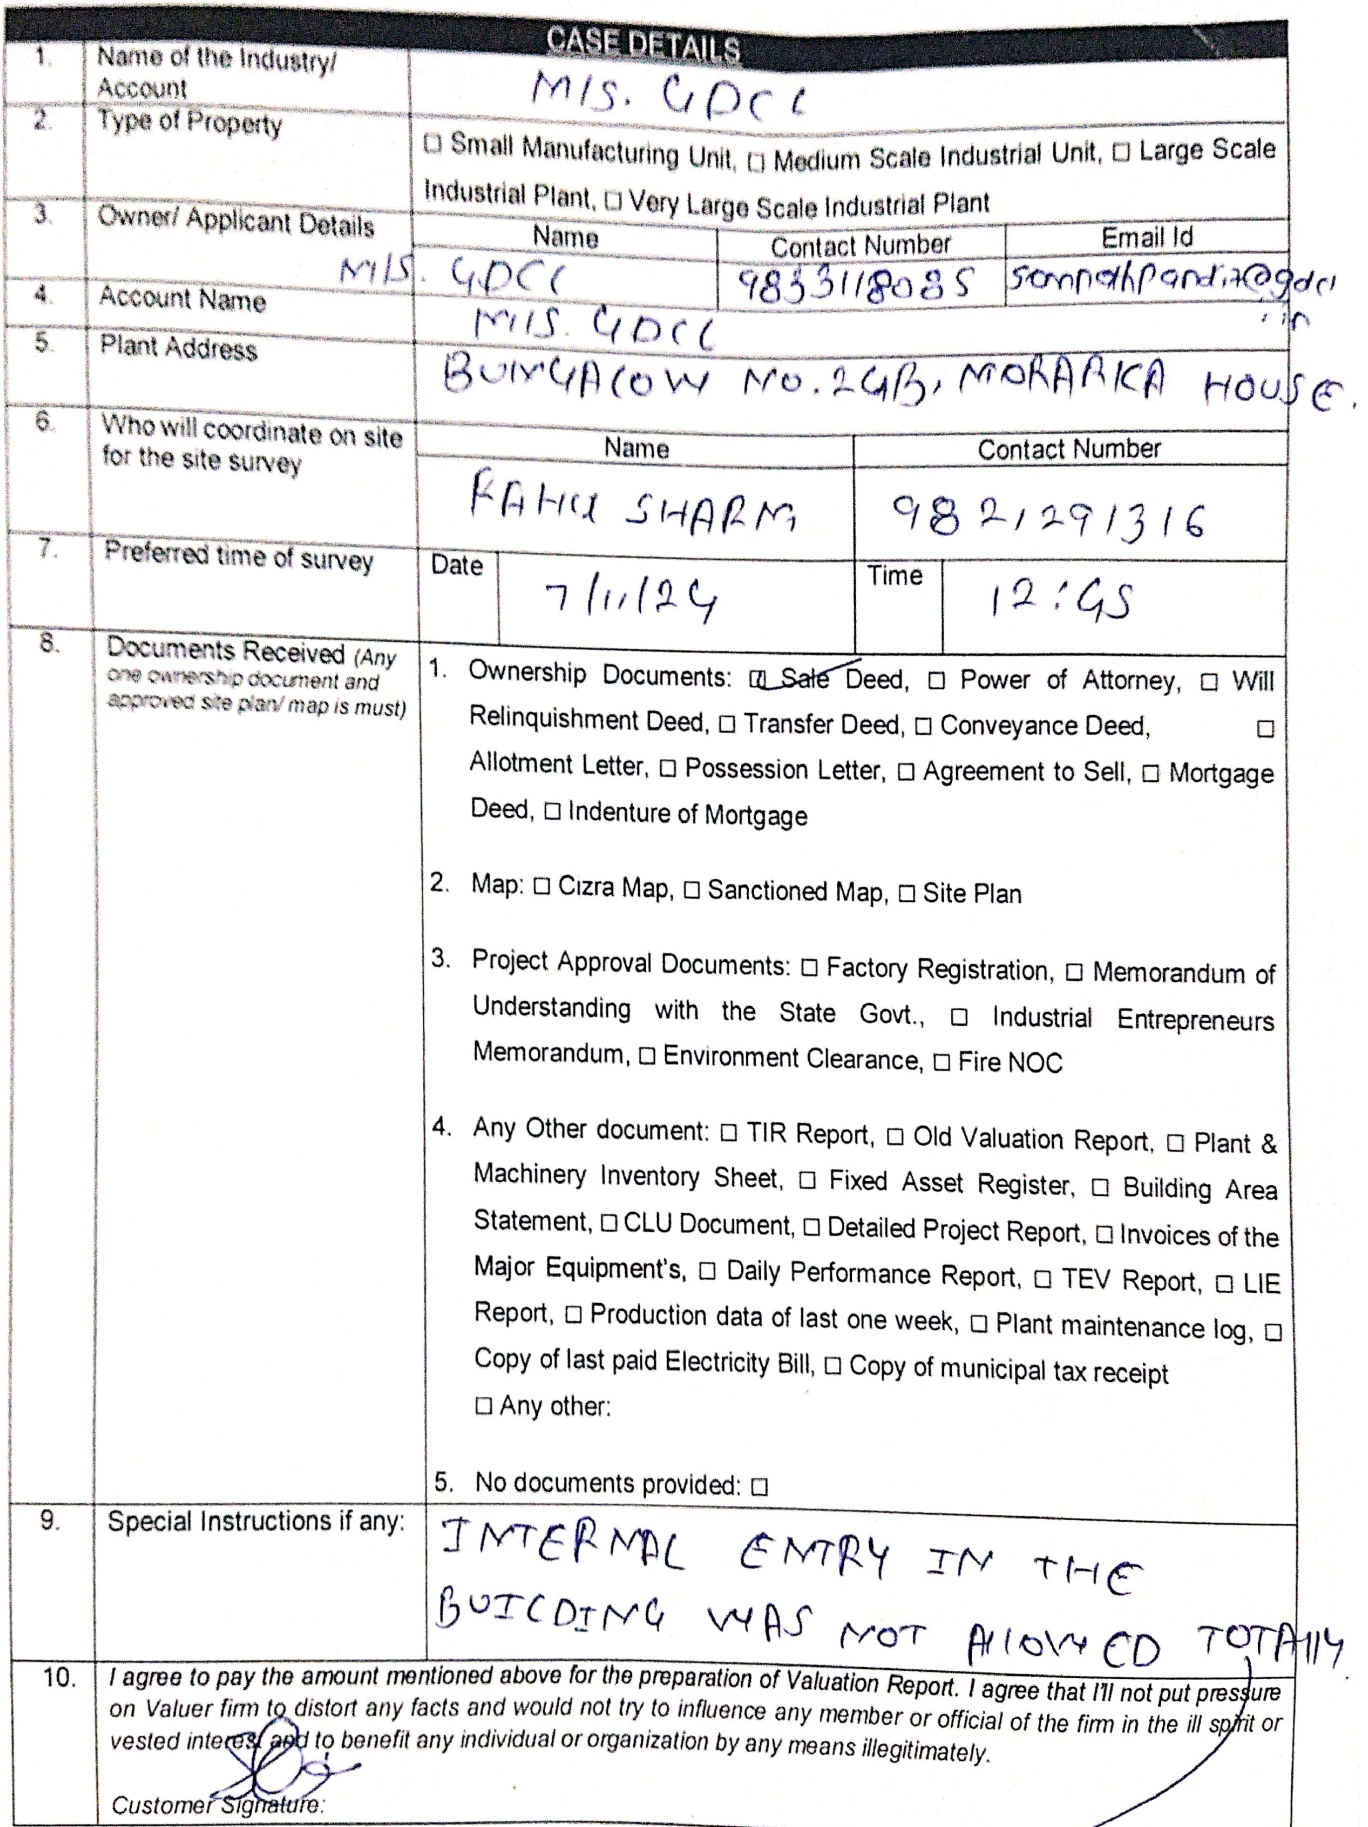 CASE DETAILS
1. Name of the Industry/
Account
M/S. GDCL
2. Type of Property
☐ Small Manufacturing Unit, ☐ Medium Scale Industrial Unit, ☐ Large Scale
Industrial Plant, ☐ Very Large Scale Industrial Plant
3. Owner/ Applicant Details
Name Contact Number Email Id
M/S. GDCL 9833118085
4. Account Name
M/S. GDCL
5. Plant Address
BUNGALOW NO. 2GB, MORARKA HOUSE.
6. Who will coordinate on site
for the site survey
Name Contact Number
SHARMA 9821291316
7. Preferred time of survey Date 7/11/24 Time 12:45
8. Documents Received (Any
one ownership document and
approved site plan/ map is must)
1. Ownership Documents: ☑ Sale Deed, ☐ Power of Attorney, ☐ Will
Relinquishment Deed, ☐ Transfer Deed, ☐ Conveyance Deed, ☐
Allotment Letter, ☐ Possession Letter, ☐ Agreement to Sell, ☐ Mortgage
Deed, ☐ Indenture of Mortgage
2. Map: ☐ Cizra Map, ☐ Sanctioned Map, ☐ Site Plan
3. Project Approval Documents: ☐ Factory Registration, ☐ Memorandum of
Understanding with the State Govt., ☐ Industrial Entrepreneurs
Memorandum, ☐ Environment Clearance, ☐ Fire NOC
4. Any Other document: ☐ TIR Report, ☐ Old Valuation Report, ☐ Plant &
Machinery Inventory Sheet, ☐ Fixed Asset Register, ☐ Building Area
Statement, ☐ CLU Document, ☐ Detailed Project Report, ☐ Invoices of the
Major Equipment's, ☐ Daily Performance Report, ☐ TEV Report, ☐ LIE
Report, ☐ Production data of last one week, ☐ Plant maintenance log, ☐
Copy of last paid Electricity Bill, ☐ Copy of municipal tax receipt
☐ Any other:
5. No documents provided: ☐
9. Special Instructions if any:
INTERNAL ENTRY IN THE
BUILDING WAS NOT AllOWED TOTAlly.
10. I agree to pay the amount mentioned above for the preparation of Valuation Report. I agree that I'll not put pressure
on Valuer firm to distort any facts and would not try to influence any member or official of the firm in the ill spirit or
vested interest and to benefit any individual or organization by any means illegitimately.
Customer Signature: